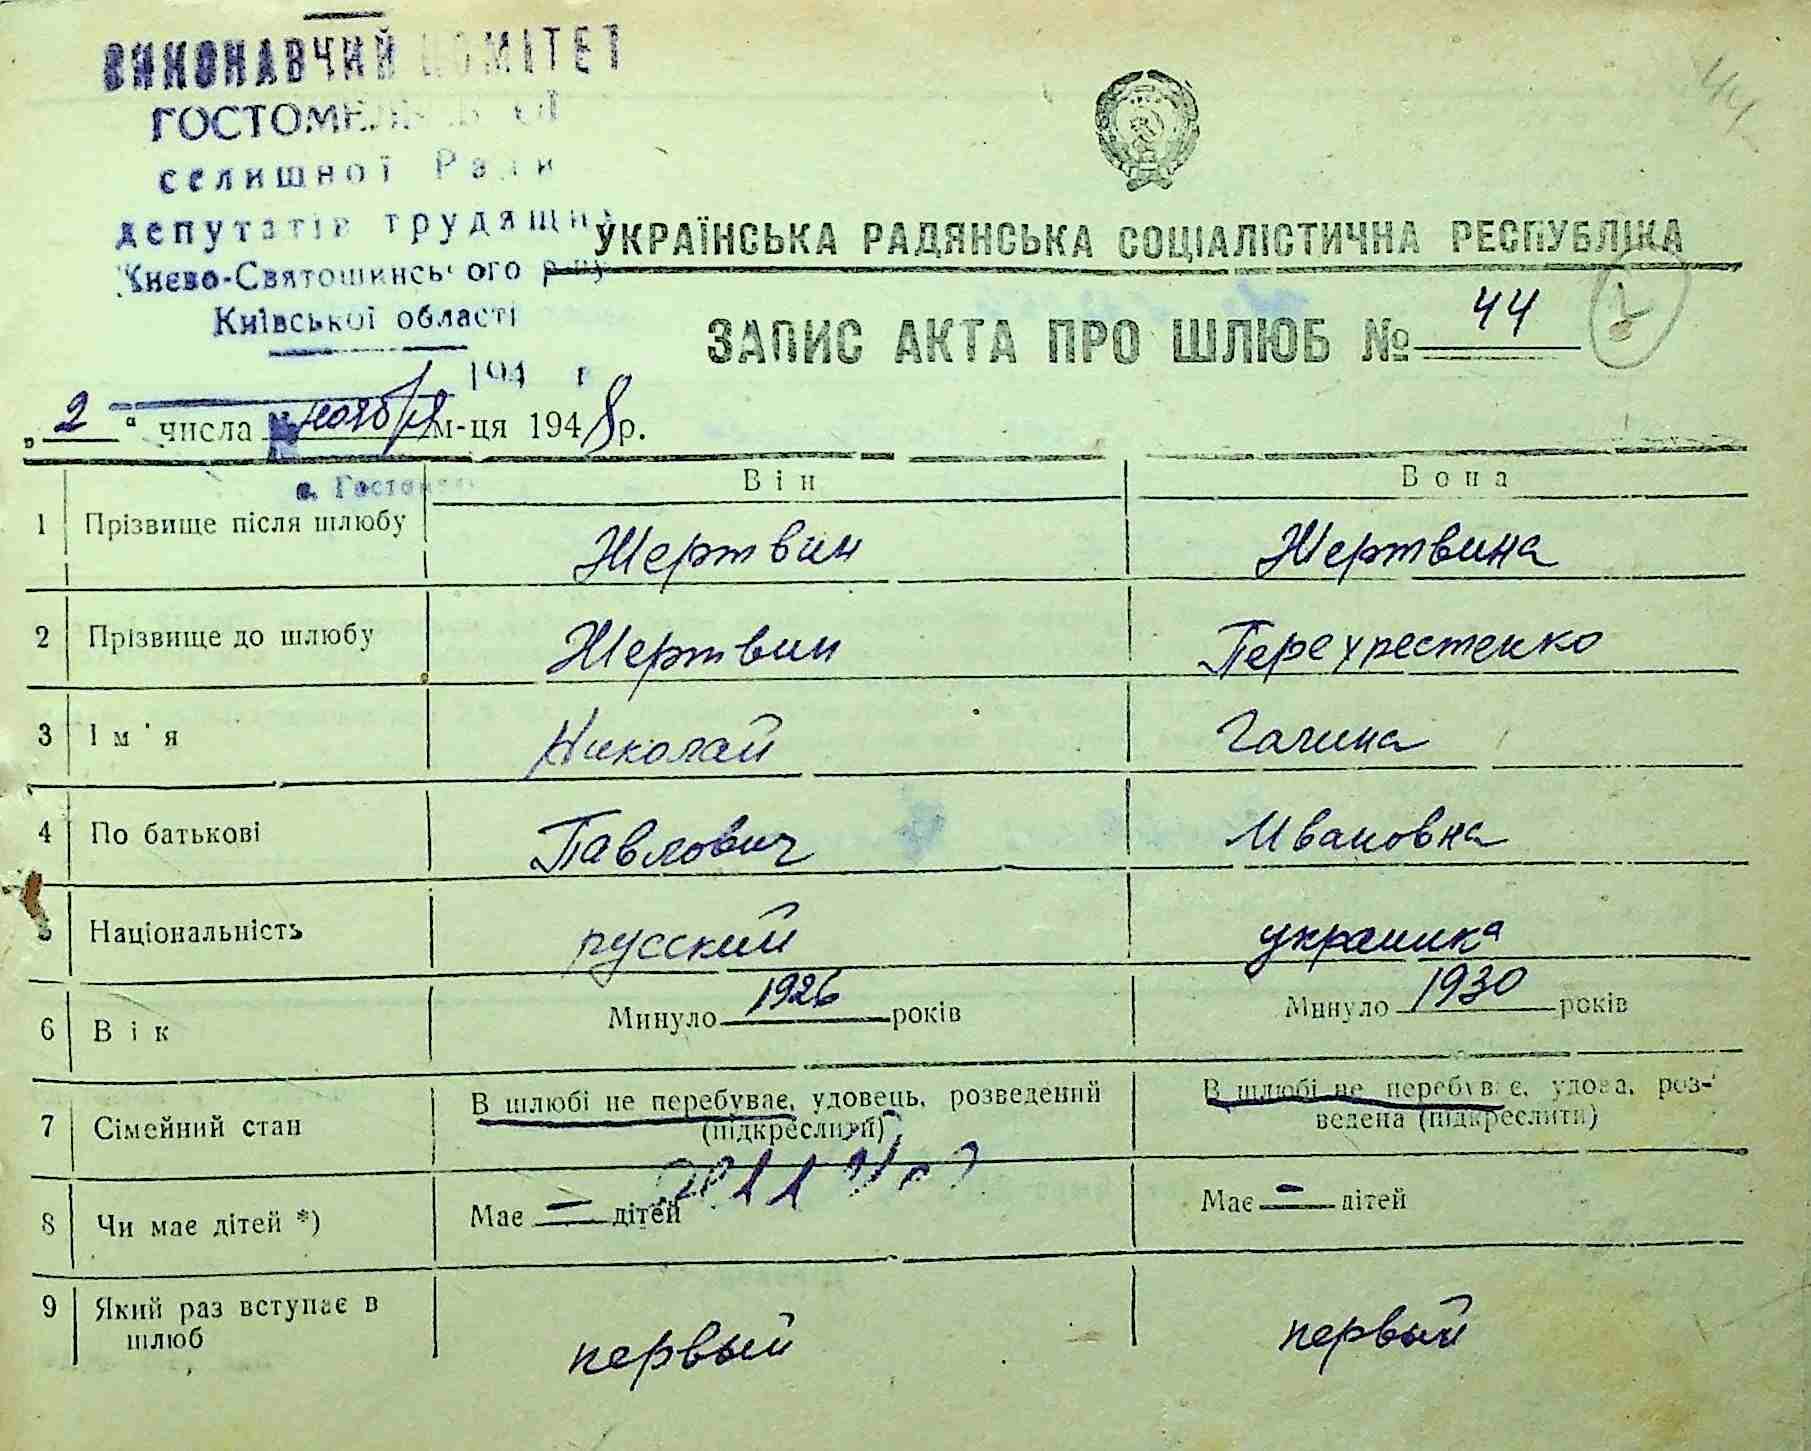 44
ВИКОНАВЧИЙ КОМІТЕТ
ГОСТОМЕЛЬСЬКОЇ
селишної Ради
депутатів трудящих
Києво-Святошинського р-ну
Київської області
194 г
с. Гостомель
УКРАЇНСЬКА РАДЯНСЬКА СОЦІАЛІСТИЧНА РЕСПУБЛІКА
ЗАПИС АКТА ПРО ШЛЮБ № 44
„2“ числа ноября м-ця 1948 р.
Він Вона
1 Прізвище після шлюбу Жертвин Жертвина
2 Прізвище до шлюбу Жертвин Перехрестенко
3 Ім'я Николай Галина
4 По батькові Павлович Ивановна
5 Національність русский украинка
6 Вік Минуло 1926 років Минуло 1930 років
7 Сімейний стан В шлюбі не перебуває, удовець, розведений (підкреслити) В шлюбі не перебуває, удова, роз-
ведена (підкреслити)
8 Чи має дітей *) Має — дітей Має — дітей
9 Який раз вступає в
шлюб первый первый